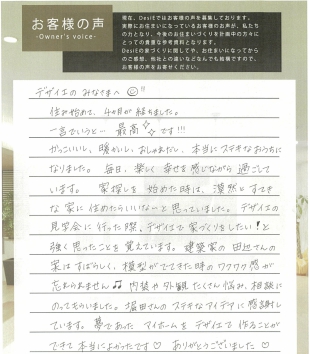 お客様の声
-Owner's voice-
現在、Desitではお客様の声を募集しております。
実際にお住まいになっているお客様のお声が、私たち
の力となり、今後のお住まいづくりを計画中の方々に
とっての貴重な参考資料となります。
Desitの家づくりに関してや、お住まいになってから
のご感想、他社との違いなどなんでも結構ですので、
お客様の声をお寄せください。
デザイエの みなさまへ
住み始めて、4ヶ月が経ちました。
一言でいうと… 最高 です!!!
かっこいいし、暖かいし、おしゃれだし、本当にステキなおうちに
なりました。 毎日、楽しく 幸せを感じながら 過ごして
います。 家探しを 始めた時は、漠然と すてき
な家に住めたらいいなと 思っていました。デザイエの
見学会に 行った際、デザイエで家づくりをしたい!と
強く思ったことを 覚えています。建築家の 田辺さんの
案はすばらしく、模型ができてきた時の ワクワク感が
忘れられません♫ 内装や外観 たくさん悩み、相談に
のってもらいました。塩田さんの ステキなアイデアに感謝し
ています。夢であった マイホームを デザイエで 作ることが
できて 本当によかったです♡ ありがとうございました♡